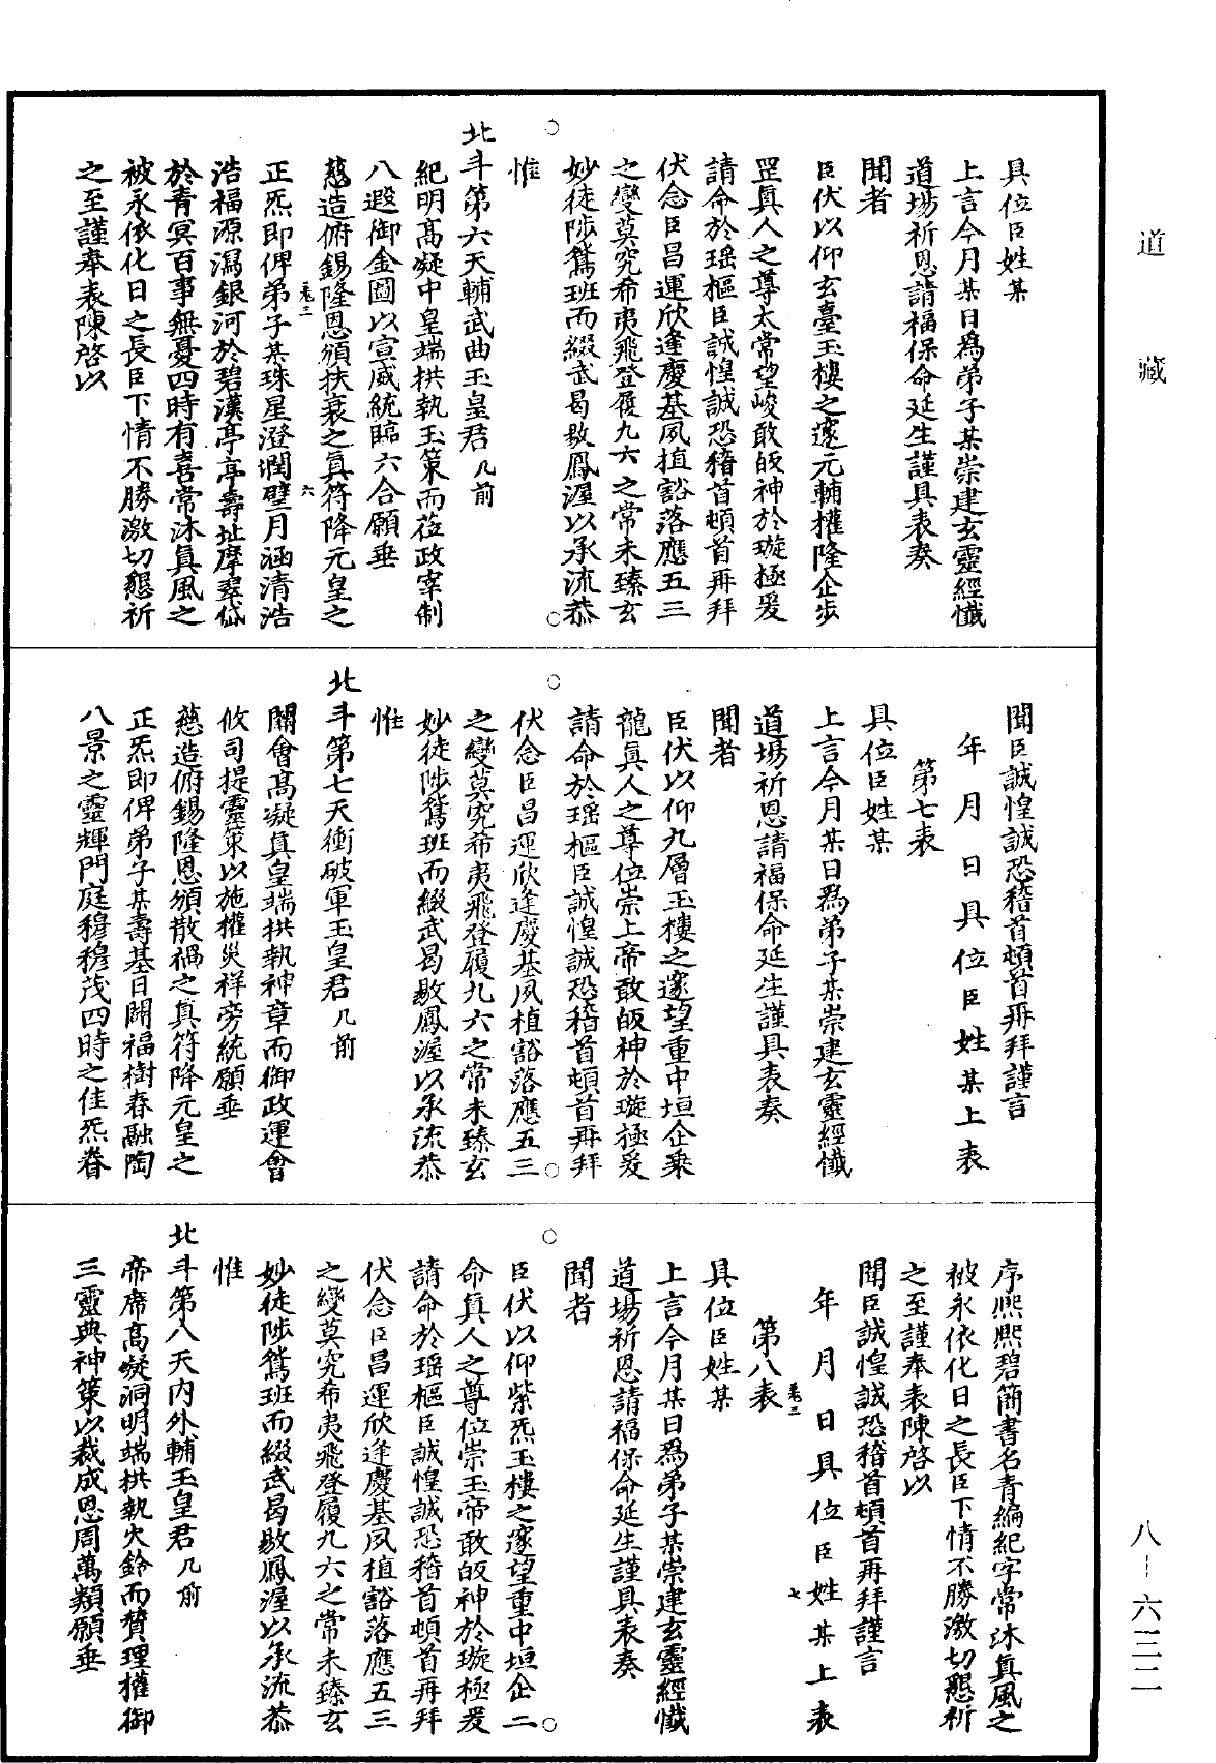 道藏
具位臣姓某
上言今月某日為弟子某崇建玄靈經懺
道場祈恩請福保命延生謹具表奏
聞者
臣伏以仰玄臺玉樓之邃元輔權隆企步
罡真人之尊太常望峻敢皈神於璇極爰
請命於瑶樞臣誠惶誠恐稽首頓首再拜
伏念臣昌運欣逢慶基夙植豁落應五三
之變莫究希夷飛登履九六之常未臻玄
妙徒陟鵞班而綴武曷敭鳳渥以承流恭
惟
北斗第六天輔武曲玉皇君几前
紀明高凝中皇端拱執玉策而莅政宰制
八遐御金圖以宣威統臨六合願垂
慈造俯錫隆恩頒扶衰之真符降元皇之
卷三 六
正炁即俾弟子某珠星澄潤璧月涵清浩
浩福源瀉銀河於碧漢亭亭壽址摩翠岱
於青冥百事無憂四時有喜常沐真風之
被永依化日之長臣下情不勝激切懇祈
之至謹奉表陳啓以
聞臣誠惶誠恐稽首頓首再拜謹言
年月日具位臣姓某上表
第七表
具位臣姓某
上言今月某日為弟子某崇建玄靈經懺
道場祈恩請福保命延生謹具表奏
聞者
臣伏以仰九層玉樓之邃望重中垣企乘
龍真人之尊位崇上帝敢皈神於璇極爰
請命於瑶樞臣誠惶誠恐稽首頓首再拜
伏念臣昌運欣逢慶基夙植豁落應五三
之變莫究希夷飛登履九六之常未臻玄
妙徒陟鵞班而綴武曷敭鳳渥以承流恭
惟
北斗第七天衝破軍玉皇君几前
關會高凝真皇端拱執神章而御政運會
攸司提靈策以施權災祥旁統願垂
慈造俯錫隆恩頒散禍之真符降元皇之
正炁即俾弟子某壽基日闢福樹春融陶
八景之靈輝門庭穆穆茂四時之佳炁眷
序熙熙碧簡書名青編紀字常沐真風之
被永依化日之長臣下情不勝激切懇祈
之至謹奉表陳啓以
聞臣誠惶誠恐稽首頓首再拜謹言
年月日具位臣姓某上表
卷三 七
第八表
具位臣姓某
上言今月某日為弟子某崇建玄靈經懺
道場祈恩請福保命延生謹具表奏
聞者
臣伏以仰紫炁玉樓之邃望重中垣企二
命真人之尊位崇玉帝敢皈神於璇極爰
請命於瑶樞臣誠惶誠恐稽首頓首再拜
伏念臣昌運欣逢慶基夙植豁落應五三
之變莫究希夷飛登履九六之常未臻玄
妙徒陟鵞班而綴武曷敭鳳渥以承流恭
惟
北斗第八天內外輔玉皇君几前
帝席高凝洞明端拱執火鈴而贊理權御
三靈典神策以裁成恩周萬類願垂
八—六三二